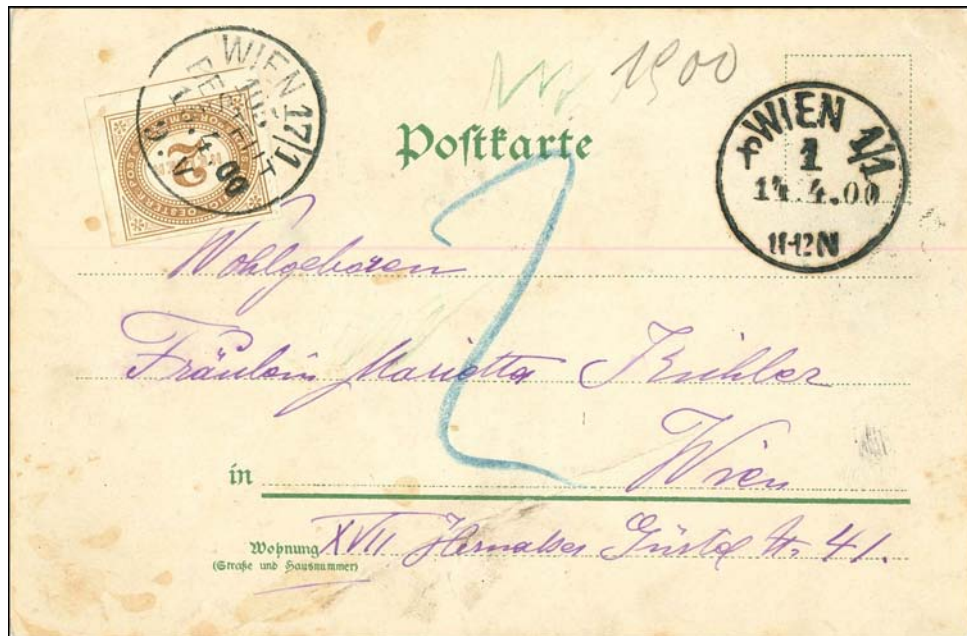 1900
WIEN 17/1
BESTELLT
.4.00
2
Postkarte
WIEN 1/1
1
14.4.00
11-12N
2
Wohlgeboren
Fräulein Marietta
in Wien
Wohnung XVII. Hernalser Gürtel N. 41.
(Straße und Hausnummer)